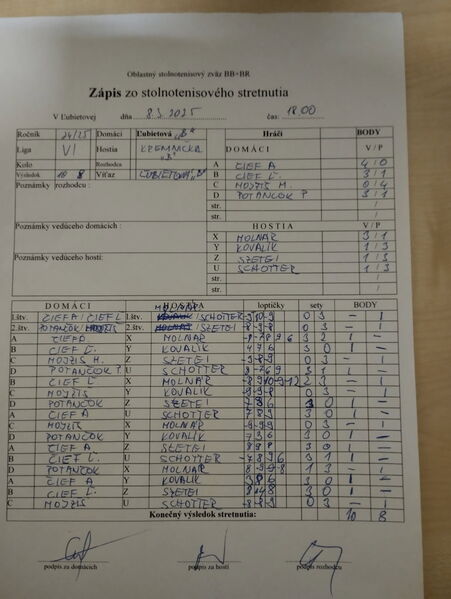 Oblastný stolnotenisový zväz BB+BR
Zápis zo stolnotenisového stretnutia
V Ľubietovej dňa 8.3.2025 čas: 18.00
Ročník 24/25 Domáci Ľubietová "B" Hráči BODY
Liga VI Hostia KREMNIČKA "B" DOMÁCI V / P
Kolo Rozhodca A CIEF A 4/0
Výsledok 10 8 Víťaz ĽUBIETOVÁ "B" B CIEF Ľ. 3/1
Poznámky rozhodcu : C MOJŽIŠ M. 0/4
D POTANČOK P 3/1
str. /
str. /
Poznámky vedúceho domácich : HOSTIA V / P
X MOLNÁR 3/1
Y KOVALÍK 1/3
Poznámky vedúceho hostí: Z SZETEI 1/3
U SCHOTTER 1/3
str. /
str. /
DOMÁCI loptičky sety BODY
1.štv. CIEF A / CIEF Ľ MOLNÁR / SCHOTTER 0 3 - 1
2.štv. POTANČOK MOJŽIŠ 2.štv. / SZETEI -8-9-8 0 3 - 1
A CIEF A X MOLNÁR 3 2 1 -
B CIEF Ľ. Y KOVALÍK 4 7 6 3 0 1 -
C MOJŽIŠ M. Z SZETEI -9-8-9 0 3 - 1
D POTANČOK P. U SCHOTTER 3 1 1 -
B CIEF Ľ X MOLNÁR 2 3 - 1
C MOJŽIŠ Y KOVALÍK 0 3 - 1
D POTANČOK Z SZETEI 3 0 1 -
A CIEF A U SCHOTTER 7 8 9 3 0 1 -
C MOJŽIŠ X MOLNÁR 0 3 - 1
D POTANČOK Y KOVALÍK 7 3 6 3 0 1 -
A CIEF A Z SZETEI 8 9 8 3 0 1 -
B CIEF Ľ. U SCHOTTER -7 8 9 6 3 1 1 -
D POTANČOK X MOLNÁR 1 3 - 1
A CIEF A Y KOVALÍK 3 0 1 -
B CIEF Ľ. Z SZETEI 3 0 1 -
C MOJŽIŠ U SCHOTTER 0 3 - 1
Konečný výsledok stretnutia: 10 8
podpis za domácich podpis za hostí podpis rozhodcu